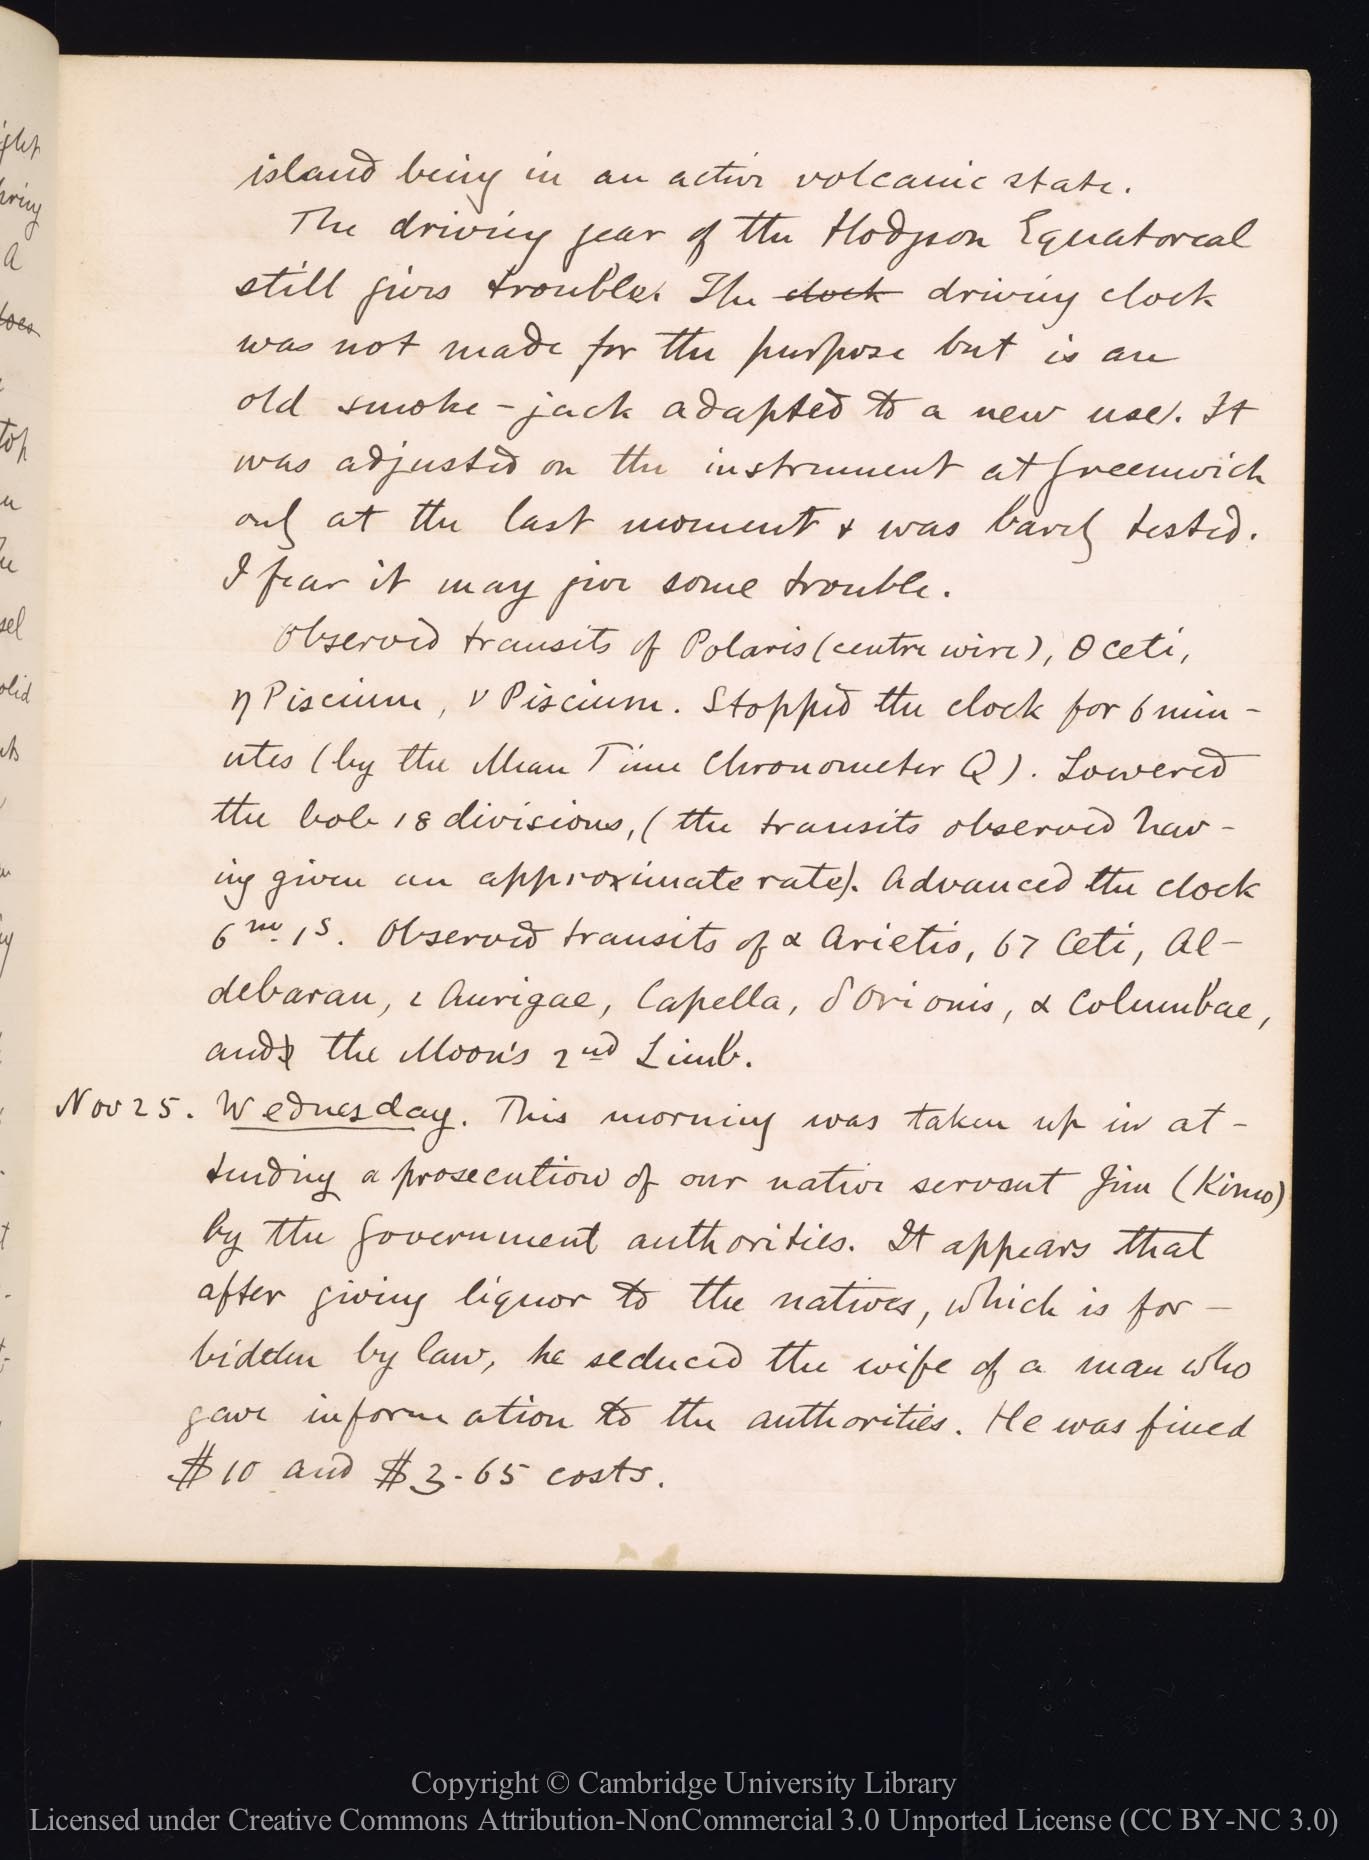 island being in an active volcanic state.
The driving gear of the Hodgson Equatoreal
still gives trouble. The clock driving clock
was not made for the purpose but is an
old smoke-jack adapted to a new use. It
was adjusted on the instrument at Greenwich
only at the last moment & was barely tested.
I fear it may give some trouble.
Observed transits of Polaris (centre wire), θ Ceti,
η Piscium, ν Piscium. Stopped the clock for 6 min-
utes (by the Mean Time Chronometer Q). Lowered
the bob 18 divisions, (the transits observed hav-
ing given an approximate rate). Advanced the clock
6m. 1s. Observed transits of α Arietis, 67 Ceti, Al-
debaran, ι Aurigae, Capella, δ Orionis, α Columbae,
and the Moon's 2nd Limb.
Nov 25. Wednesday. This morning was taken up in at-
tending a prosecution of our native servant Jim (Kimo)
by the Government authorities. It appears that
after giving liquor to the natives, which is for-
bidden by law, he seduced the wife of a man who
gave information to the authorities. He was fined
$10 and $3.65 costs.
ight
A
does
top
sel
olid
Copyright © Cambridge University Library
Licensed under Creative Commons Attribution-NonCommercial 3.0 Unported License (CC BY-NC 3.0)